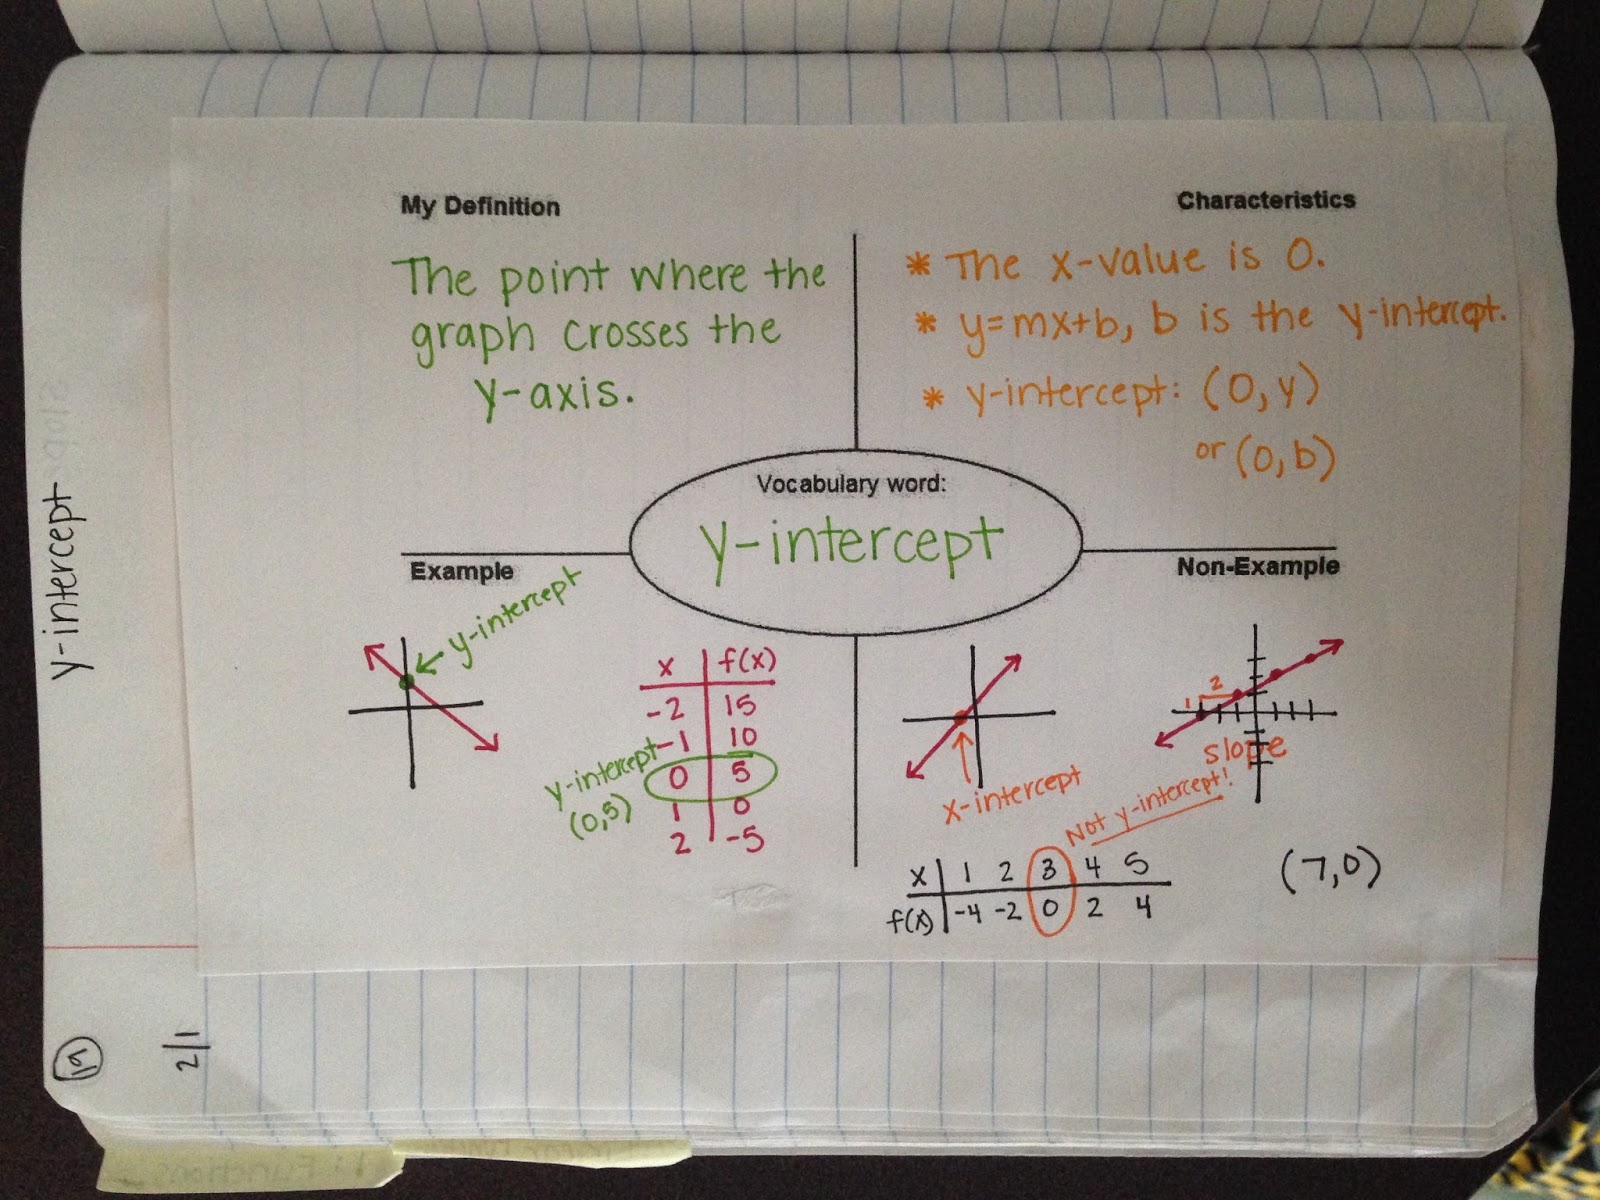 My Definition
The point where the
graph crosses the
y-axis.
Characteristics
* The x-value is 0.
* y=mx+b, b is the y-intercept.
* y-intercept: (0,y)
or (0,b)
Vocabulary word:
y-intercept
Example
y-intercept
x f(x)
-2 15
-1 10
0 5
1 0
2 -5
y-intercept
(0,5)
Non-Example
x-intercept
1 2
slope
Not y-intercept!
x 1 2 3 4 5
f(x) -4 -2 0 2 4
(7,0)
y-intercept
19
2/1
Functions